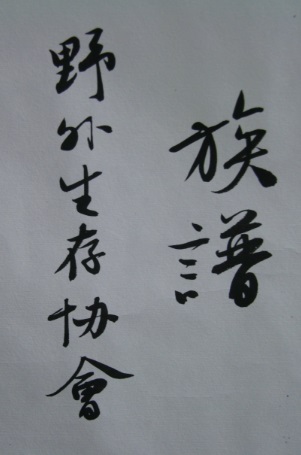 族譜
野外生存协會